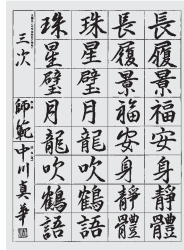 長履景福安身靜體
長履景福安身靜體
珠星璧月龍吹鶴語
珠星璧月龍吹鶴語
三次 師範 中川真華